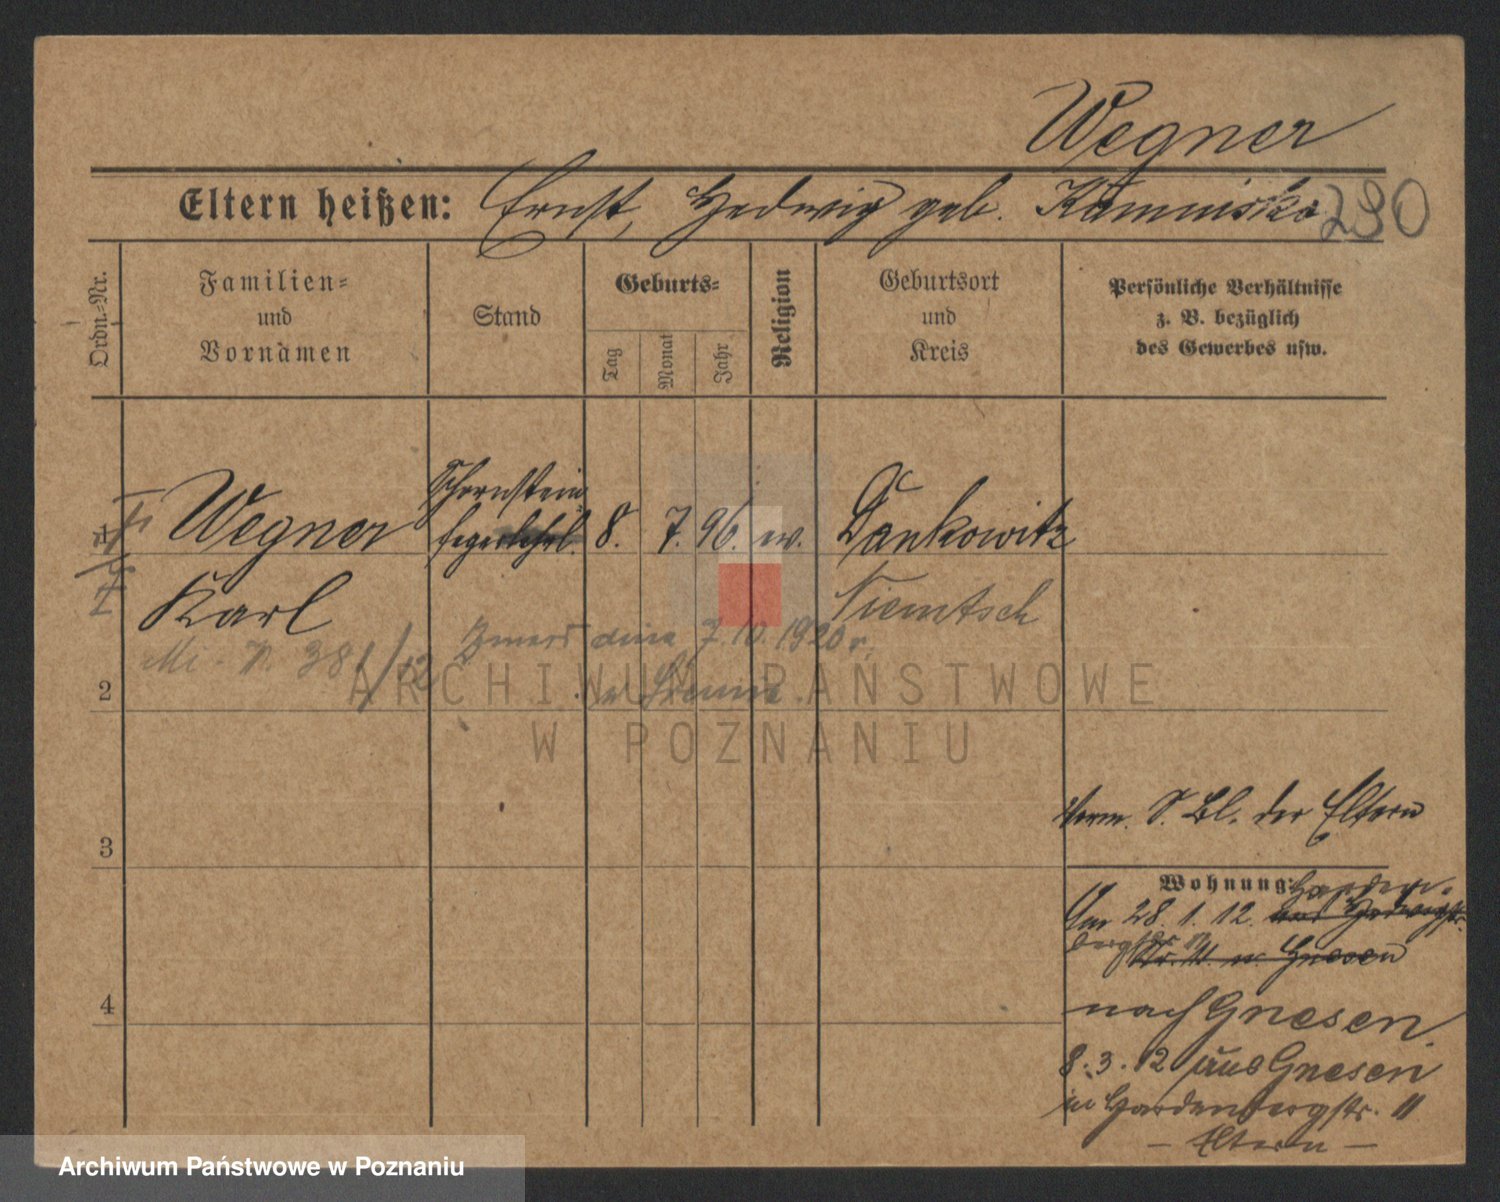 Wegner
Eltern heißen: Ernst, Hedwig geb. Kaminiska 290
Ordn.-Nr.
Familien- und Vornamen
Stand
Geburts-
Tag
Monat
Jahr
Religion
Geburtsort und Kreis
Persönliche Verhältnisse z. B. bezüglich des Gewerbes usw.
1
Wegner
Schornstein
fegerlehrl.
8. 7. 96. ev. Dankowitz
Karl
Niemtsch
Zmarł dnia 7.10.1920 r.
2
ARCHIWUM PAŃSTWOWE
W POZNANIU
Verm. S. Bl. der Eltern
3
Wohnung:
Am 28. 1. 12.
4
nach Gnesen.
8.3.12 aus Gnesen
in Hardenbergstr. 11
- Eltern -
Archiwum Państwowe w Poznaniu